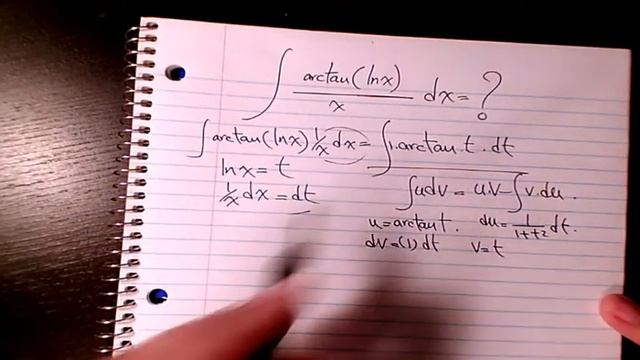 ∫ arctan(lnx)/x dx = ?
∫arctan(lnx) 1/x dx = ∫1.arctan t . dt
lnx = t
∫udv = uv - ∫v.du.
1/x dx = dt
u = arctan t. du = 1/1+t² dt.
dv = (1) dt v = t